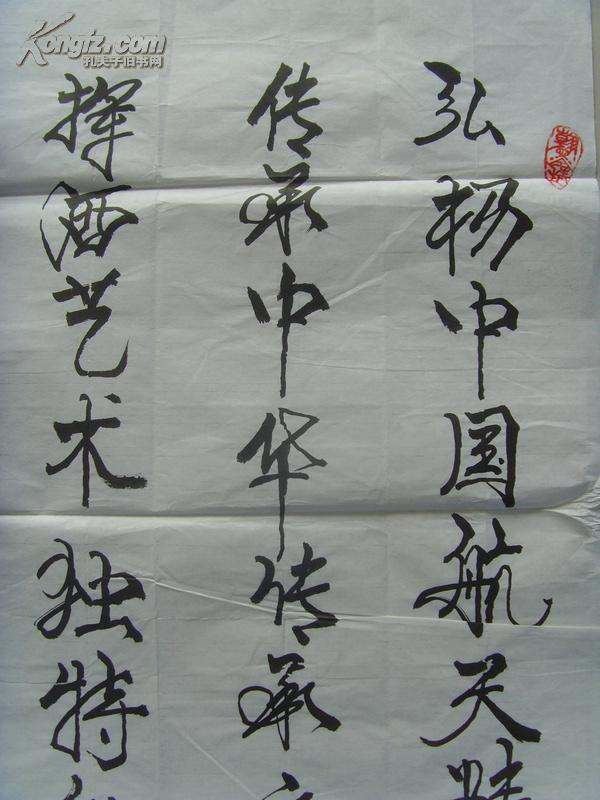 弘扬中国航天
传承中华传承
探酒艺术独特
Kongfz.com
孔夫子旧书网